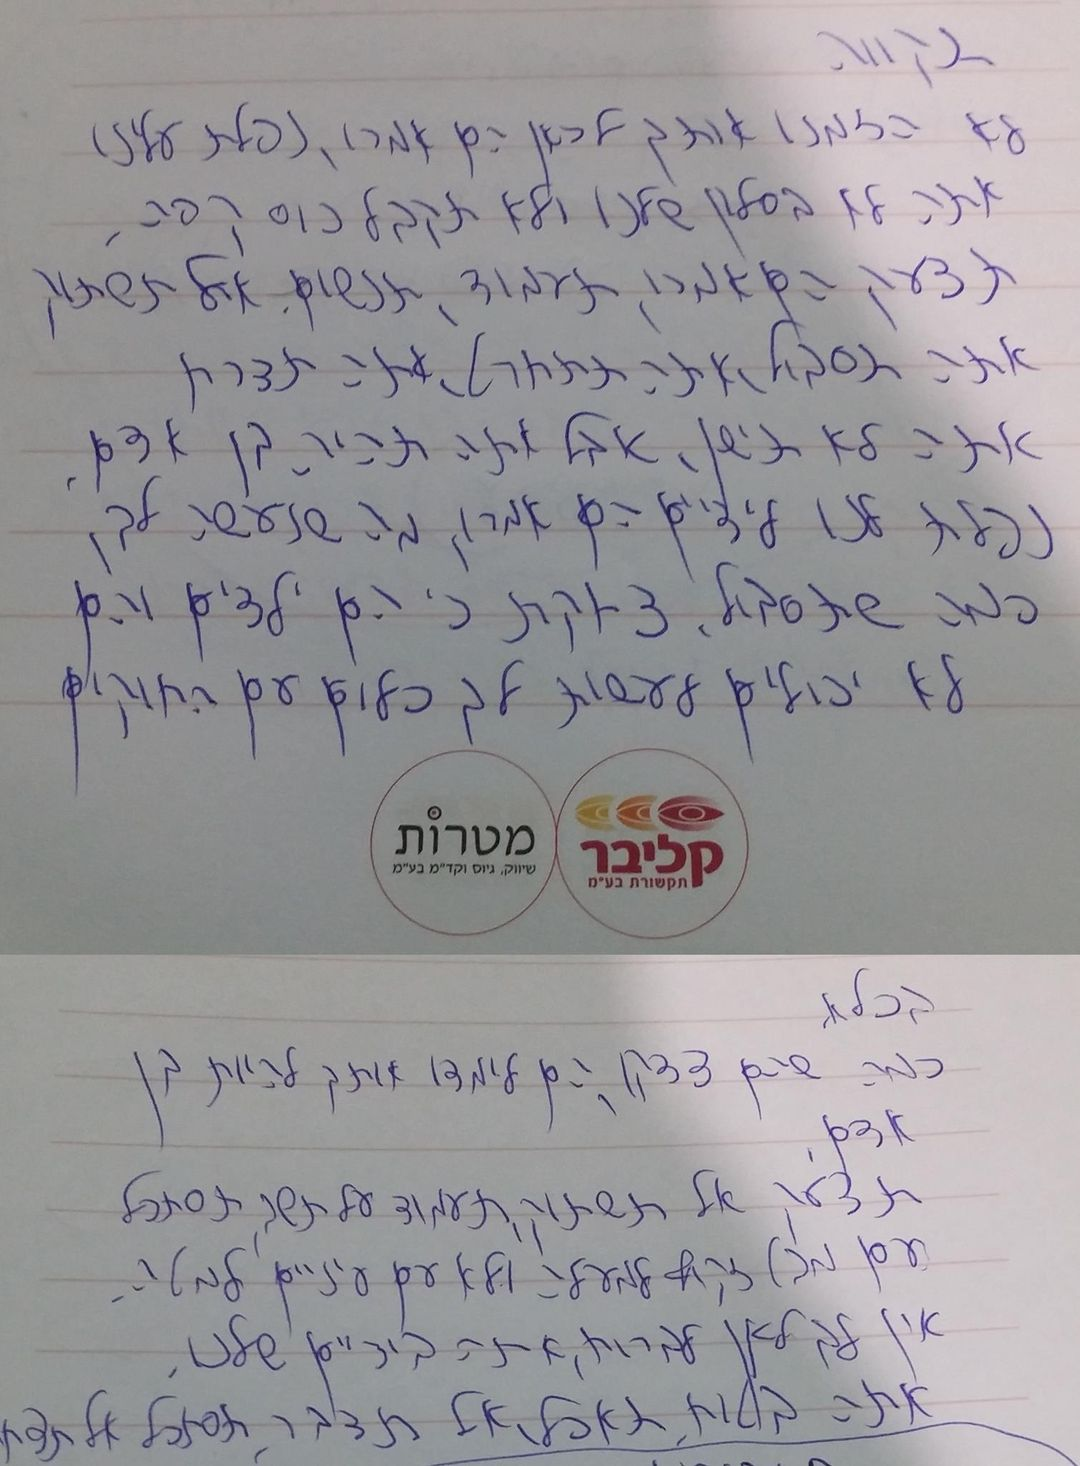 תקווה
לא הזמנו אותך לכאן הם אמרו, נפלת עלינו
אתה לא בסלון שלנו ולא תקבל כוס קפה,
תצעק הם אמרו, תעמוד, תנשום, אל תשתוק
אתה תסבול, אתה תתחרט, אתה תצרח
אתה לא תישן, אבל אתה תהיה בן אדם,
נפלת לנו לידיים הם אמרו, מה שנעשה לך,
כמה שתסבול, צחקת כי הם ילדים והם
לא יכולים לעשות לך כלום עם החוקים
מטרות
שיווק, גיוס וקד"מ בע"מ
קליבר
תקשורת בע"מ
בכלא
כמה שהם צדקו, הם לימדו אותך להיות בן
אדם,
תצעק, אל תשתוק, תעמוד על תסתכל
עם זקוף למעלה ולא עם עיניים למטה.
אין לך לאן לברוח, אתה בידיים שלנו,
אתה תאכל, אל תדבר, תסתכל אל